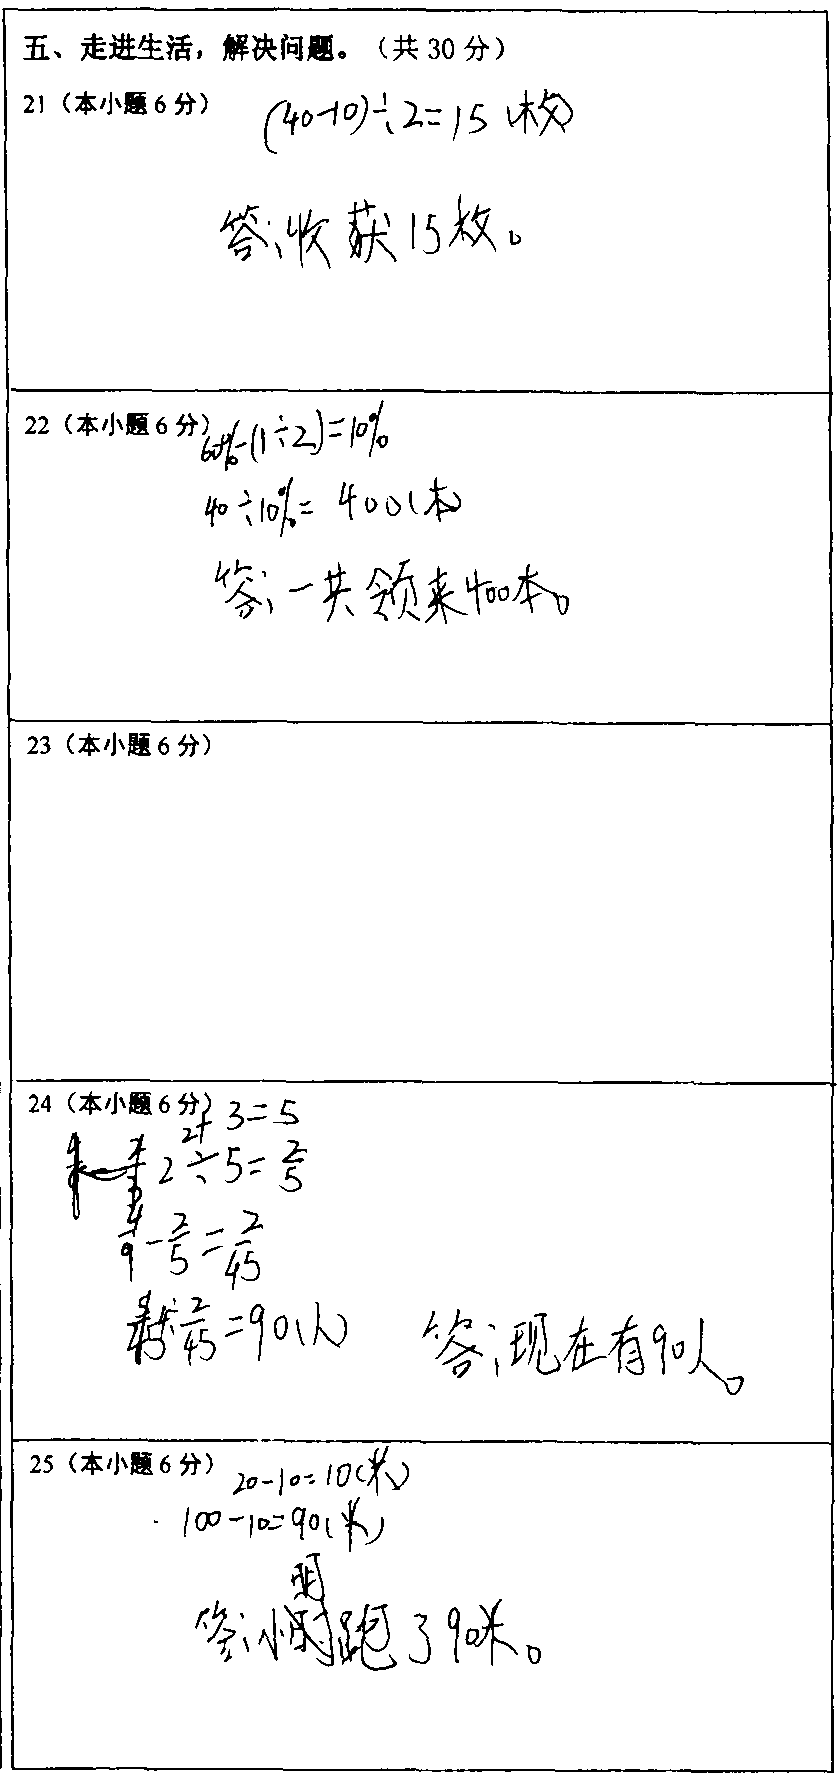 五、走进生活，解决问题。（共 30 分）
21（本小题 6 分）
(40-10)÷2=15（枚）
答：收获15枚。
22（本小题 6 分）
60%-(1÷2)=10%
40÷10%=400（本）
答：一共领来400本。
23（本小题 6 分）
24（本小题 6 分）
2+3=5
2÷5=2/5
4/9-2/5=2/45
÷2/45=90（人）
答：现在有90人。
25（本小题 6 分）
20-10=10（米）
100-10=90（米）
明
答：小跑了90米。